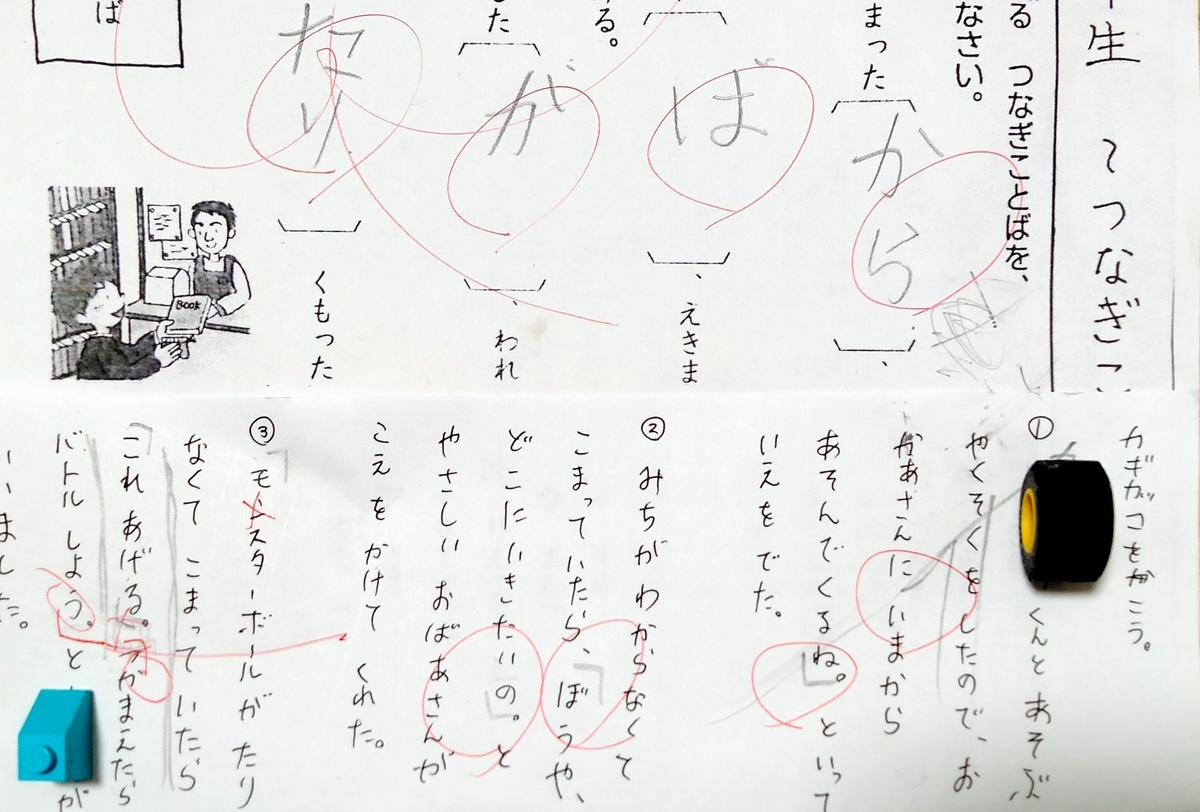 生 〜つなぎこ
る つなぎことばを、
なさい。
まった
から
、
ば
、えきま
る。
した
が
、われ
なり
くもった
ば
BOOK
カギカッコをかこう。
①
くんと あそぶ
やくそくをしたので、お
かあさんに いまから
あそんでくるね。といって
いえをでた。
② みちがわからなくて
こまっていたら、ぼうや、
どこにいきたいの。と
やさしい おばあさんが
こえを かけて くれた。
③ モンスターボールが たり
なくて こまっていたら
これ あげる。つかまえたら
バトル しよう。と
が
いいました。